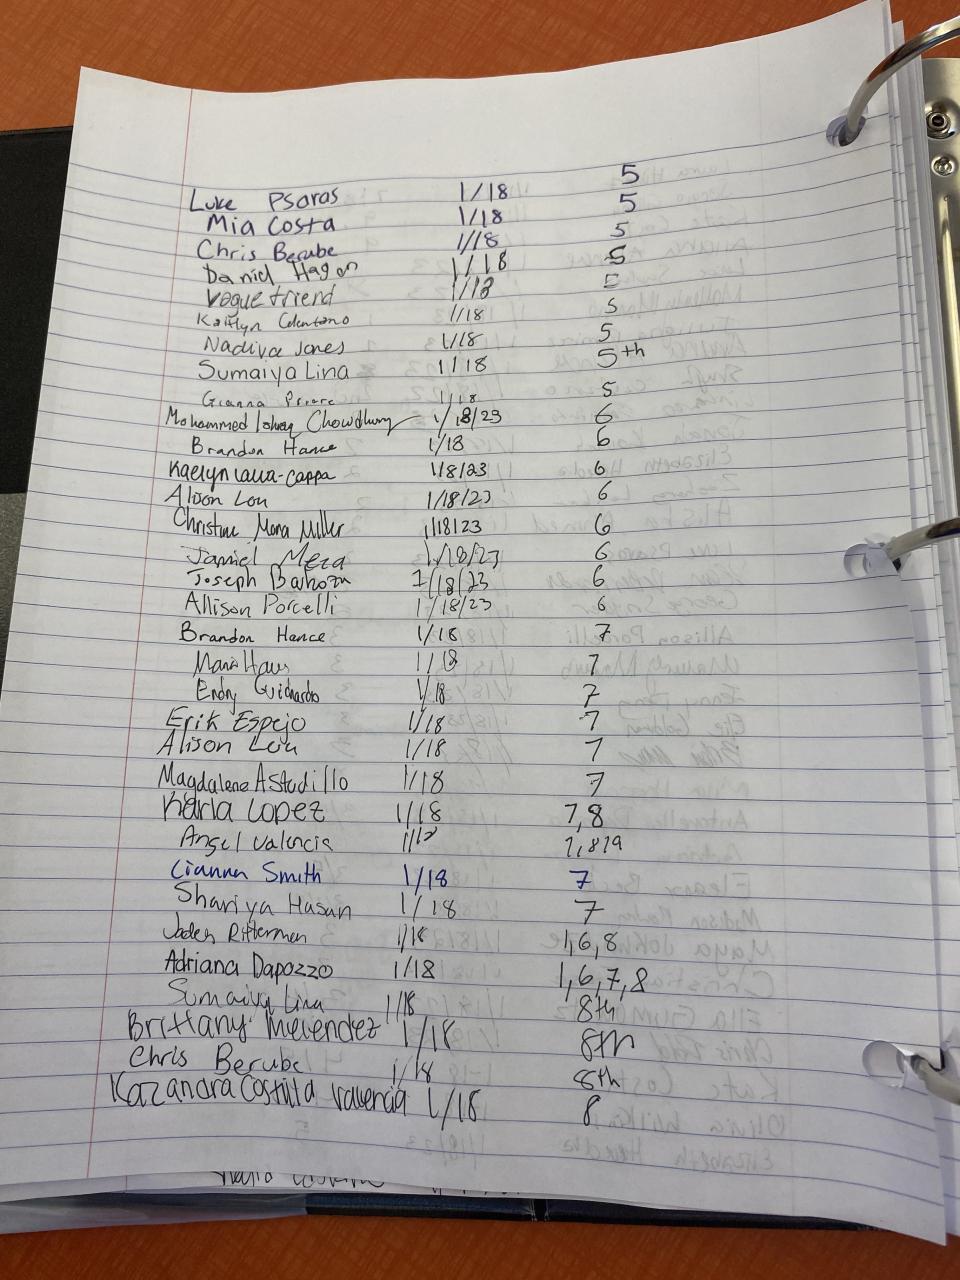 Luke Psoras 1/18 5
Mia Costa 1/18 5
Chris Berube 1/18 5
Daniel Hagon 1/18 5
Vogue friend 1/18 5
Kaitlyn Celentano 1/18 5
Nadiya Jones 1/18 5
Sumaiya Lina 1/18 5th
Gianna 1/18 5
Mohammed Ishaq Chowdhury 1/18/23 6
Brandon Hance 1/18 6
Kaelyn lauia-cappa 1/18/23 6
Alison Lou 1/18/23 6
Christine Mona Miller 1/18/23 6
Jamiel Meza 1/18/23 6
Joseph Barboza 1/18/23 6
Allison Porcelli 1/18/23 6
Brandon Hance 1/18 7
Maria 1/18 7
Endry Guichardo 1/18 7
Erik Espejo 1/18 7
Alison Leiu 1/18 7
Magdalena Astudillo 1/18 7
Karla Lopez 1/18 7,8
Angel Valencia 1/18 7,8,9
Cianna Smith 1/18 7
Shariya Hasan 1/18 7
Jaden Ritterman 1/18 1,6,8
Adriana Dapozzo 1/18 1,6,7,8
Sumaiya Lina 1/18 8th
Brittany Melendez 1/18 8th
Chris Berube 1/18 8th
Kazandra Costilla Valencia 1/18 8